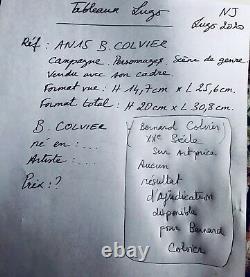 Tableaux Lugo
NJ
Lugo 2020
Réf : AN15 B. COLVIER
Campagne. Personnages. Scène de genre
Vendu avec son cadre.
Format vue : H 14,7cm x L 25,6cm.
Format total : H 20cm x L 30,8cm.
B. COLVIER
né en : ...
Artiste : ....
Prix : ?
Bernard Colvier
XXe Siècle
sur Artprice
Aucun
résultat
d'Adjudication
disponible
pour Bernard
Colvier